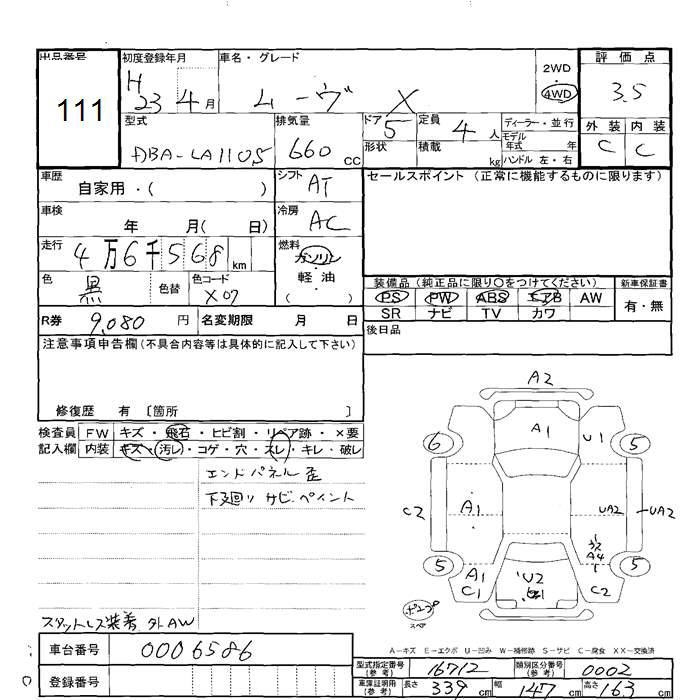 出品番号 初度登録年月 車名・グレード 2WD 評価点
111 H 23 4月 ムーヴ X 4WD 3.5
型式 排気量 ドア 5 定員 4人 ディーラー・並行 外装 内装
DBA-LA110S 660cc 形状 積載 kg モデル年式 年 C C
ハンドル 左・右
車歴 自家用・( ) シフト AT セールスポイント (正常に機能するものに限ります)
車検 年 月( 日) 冷房 AC
走行 4万6千568km 燃料 ガソリン
軽・油
( )
色 黒 色替 色コード X07 装備品 (純正品に限り○をつけてください) 新車保証書
PS PW ABS エアB AW 有・無
R券 9,080円 名変期限 月 日 SR ナビ TV カワ
注意事項申告欄 (不具合内容等は具体的に記入して下さい) 後日品
修復歴 有 〔箇所 〕
検査員 FW キズ・飛石・ヒビ割・リペア跡・×要
記入欄 内装 キズ・汚レ・コゲ・穴・スレ・キレ・破レ
エンドパネル歪
下廻り サビ ペイント
A2
A1 U1
6 5
C2 A1 UA2 UA2
A4
5 5
A1 C1 U2 C2
スペア
スタットレス装着 外AW
A-キズ E-エクボ U-凹み W-補修跡 S-サビ C-腐食 XX-交換済
車台番号 0006586
型式指定番号(参考) 16712 類別区分番号(参考) 0002
登録番号
車庫証明用(参考) 長さ 339cm 幅 147cm 高さ 163cm